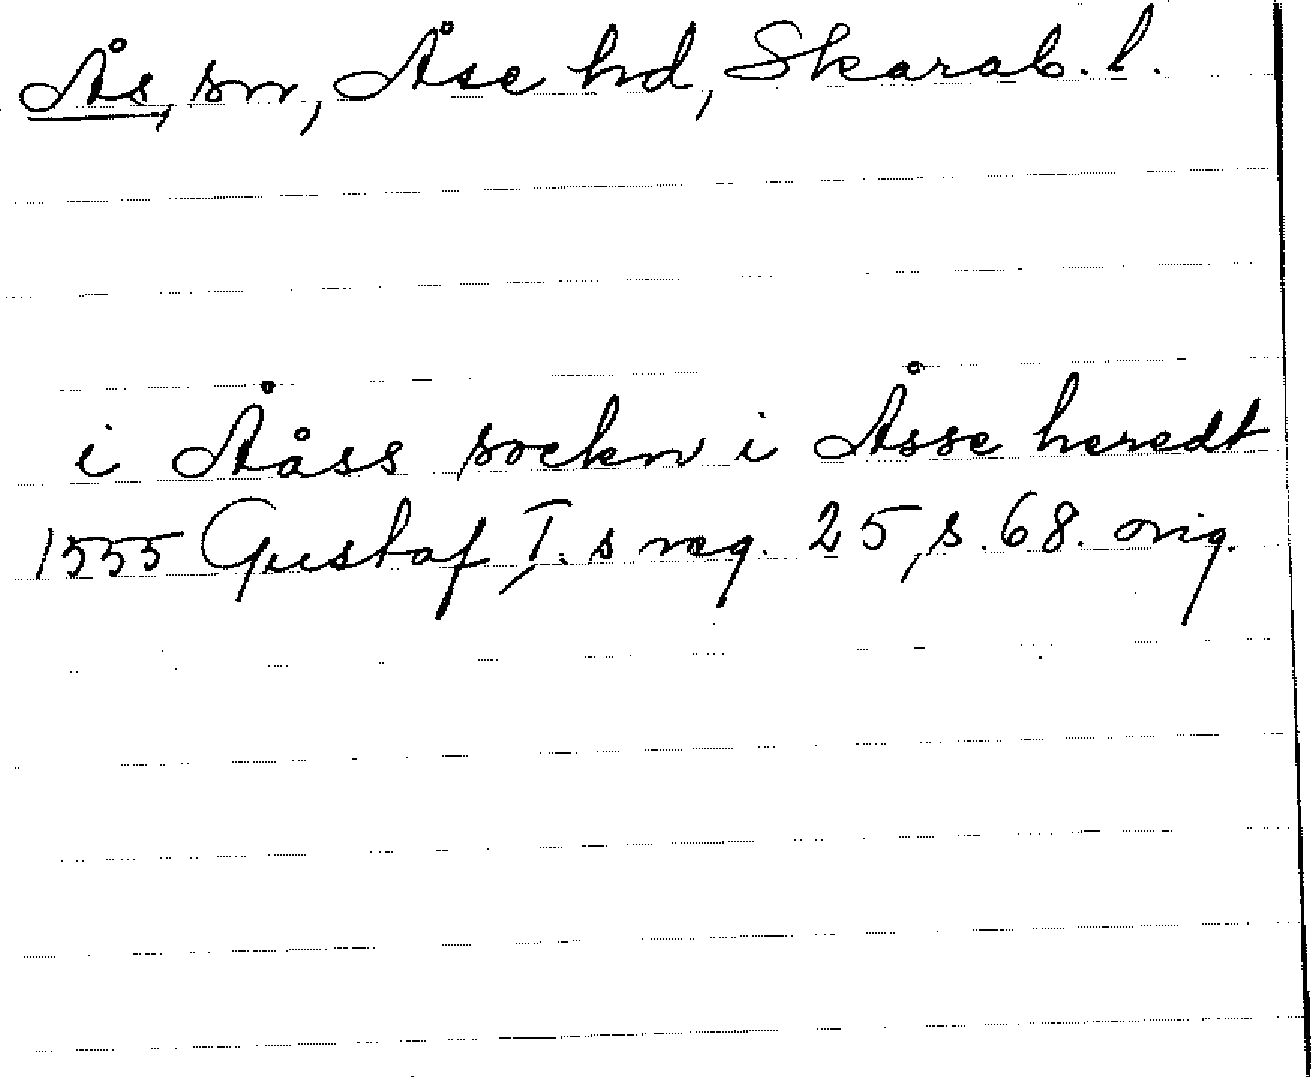 Ås, sn, Åse hd, Skarab. l.
i Ååss sockn i Åsse heredt
1555 Gustaf I. s reg. 25, s. 68. orig.